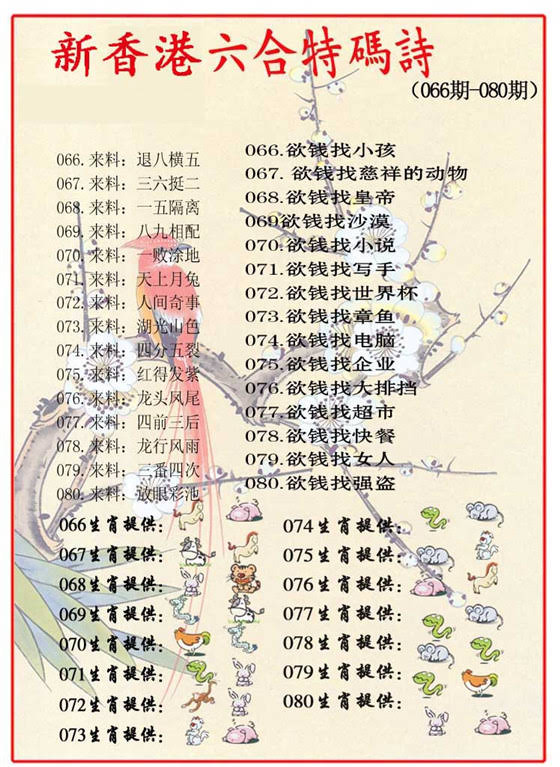 新香港六合特碼詩
（066期-080期）
066.来料：退八横五
067.来料：三六挺二
068.来料：一五隔离
069.来料：八九相配
070.来料：一败涂地
071.来料：天上月兔
072.来料：人间奇事
073.来料：湖光山色
074.来料：四分五裂
075.来料：红得发紫
076.来料：龙头风尾
077.来料：四前三后
078.来料：龙行风雨
079.来料：三番四次
080.来料：放眼彩池
066.欲钱找小孩
067. 欲钱找慈祥的动物
068.欲钱找皇帝
069欲钱找沙漠
070.欲钱找小说
071.欲钱找写手
072.欲钱找世界杯
073.欲钱找章鱼
074.欲钱找电脑
075.欲钱找企业
076.欲钱找大排挡
077.欲钱找超市
078.欲钱找快餐
079.欲钱找女人
080.欲钱找强盗
066生肖提供：
067生肖提供：
068生肖提供：
069生肖提供：
070生肖提供：
071生肖提供：
072生肖提供：
073生肖提供：
074生肖提供：
075生肖提供：
076生肖提供：
077生肖提供：
078生肖提供：
079生肖提供：
080生肖提供：